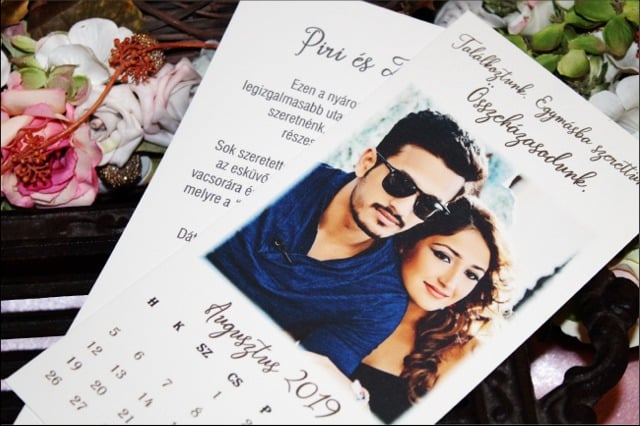 Piri és
Ezen a nyáro
legizgalmasabb uta
szeretnénk
részes
Sok szeretett
az esküvő
vacsorára é
melyre a "
Dát
Találkoztunk. Egymásba szerettün
Összeházasodunk.
Augusztus 2019
H K SZ CS P
5 6 7 1
12 13 14 8
19 20 21
26 27